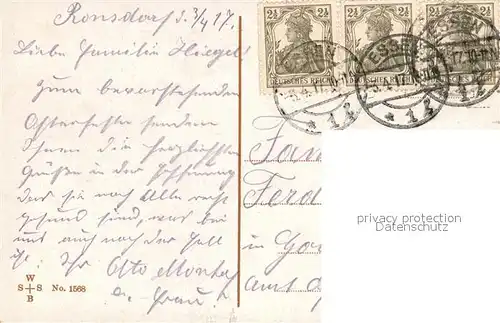 Ronsdorf d. 3/4 17.
Liebe Familie Fliegel!
Zum bevorstehenden
Osterfeste senden
Ihnen die herzlichsten
Grüße in der Hoffnung
das sie noch Alle recht
gesund sind, was bei
uns auch noch der Fall
ist. Ihr Otto Montag
u. Frau!
W
S S
B
No. 1568
2½ 2½
2½ 2½
2½ 2½
DEUTSCHES REICH
DEUTSCHES REICH
ESSEN
ESSEN
* 1 z
* 1 z
Fam
Ferd
in
privacy protection
Datenschutz